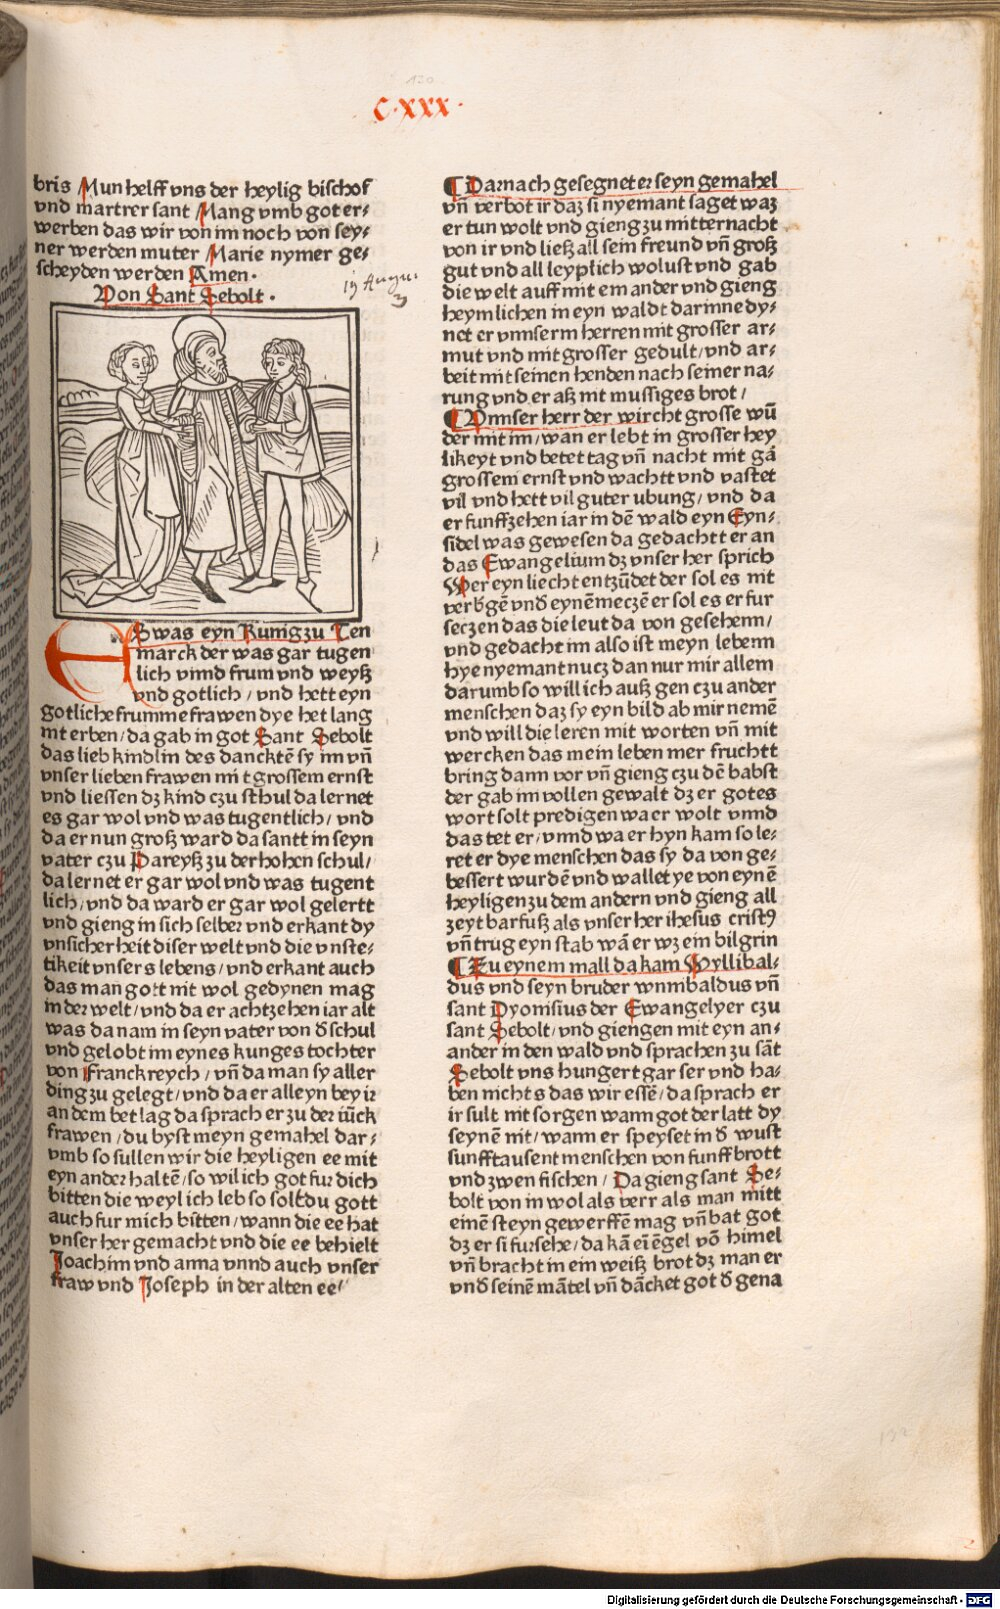 130
C·xxx·
bris Mun helff vns der heylig bischof
vnd martrer sant Mang vmb got er⸗
werben das wir von im noch von sey⸗
ner werden muter Marie nymer ge⸗
scheyden werden Amen·
Von Sant Sebolt·
19 Augu.
ES was eyn Kunig zu Ten
marck der was gar tugen
lich vnnd frum vnd weyß
vnd gotlich/ vnd hett eyn
gotliche frumme frawen dye het lang
nit erben/ da gab in got Sant Sebolt
das lieb kindlin des dancktē sy im vn̄
vnser lieben frawen mit grossem ernst
vnd liessen dz kind czu sthul da lernet
es gar wol vnd was tugentlich/ vnd
da er nun groß ward da santt in seyn
vater czu Pareyß zu der hohen schul/
da lernet er gar wol vnd was tugent
lich/ vnd da ward er gar wol gelertt
vnd gieng in sich selber vnd erkant dy
vnsicherheit diser welt vnd die vnste⸗
tikeit vnsers lebens/ vnd erkant auch
das man gott nit wol gedynen mag
in der welt/ vnd da er achtzehen iar alt
was da nam in seyn vater von d̄ schul
vnd gelobt im eynes kunges tochter
von Franckreych/ vn̄ da man sy aller
ding zu gelegt/ vnd da er alleyn bey ir
an dem bet lag da sprach er zu der iūck
frawen/ du byst meyn gemahel dar⸗
vmb so sullen wir die heyligen ee mit
eyn ander haltē/ so wil ich got fur dich
bitten die weyl ich leb so solt du gott
auch fur mich bitten/ wann die ee hat
vnser her gemacht vnd die ee behielt
Joachim vnd anna vnnd auch vnser
fraw vnd Joseph in der alten ee/
¶ Darnach gesegnet er seyn gemahel
vn̄ verbot ir daz si nyemant saget waz
er tun wolt vnd gieng zu mitternacht
von ir vnd ließ all sein freund vn̄ groß
gut vnd all leyplich wolust vnd gab
die welt auff mit em ander vnd gieng
heymlichen in eyn waldt darinne dy⸗
net er vnnserm herren mit grosser ar⸗
mut vnd mit grosser gedult/ vnd ar⸗
beit mit seinen henden nach seiner na⸗
rung vnd er aß nit mussiges brot/
¶ Vnnser herr der wircht grosse wū
der mit im/ wan er lebt in grosser hey
likeyt vnd betet tag vn̄ nacht mit gā
grossem ernst vnd wachtt vnd vastet
vil vnd hett vil guter vbung/ vnd da
er funffzehen iar in dē wald eyn Eyn⸗
sidel was gewesen da gedachtt er an
das Ewangelium dz vnser her sprich
Wer eyn liecht entzūdet der sol es nit
verb̄gē vnd̄ eynē meczē er sol es er fur
seczen das die leut da von gesehenn/
vnd gedacht im also ist meyn lebenn
hye nyemant nucz dan nur mir allem
darumb so will ich auß gen czu ander
menschen daz sy eyn bild ab mir nemē
vnd will die leren mit worten vn̄ mit
wercken das mein leben mer fruchtt
bring dann vor vn̄ gieng czu dē babst
der gab im vollen gewalt dz er gotes
wort solt predigen wa er wolt vnnd
das tet er/ vnnd wa er hyn kam so le⸗
ret er dye menschen das sy da von ge⸗
bessert wurdē vnd wallet ye von eynē
heyligen zu dem andern vnd gieng all
zeyt barfuß als vnser her ihesus cristꝰ
vn̄ trug eyn stab wā er wz ein bilgrin
¶ Zu eynem mall da kam Wyllibal⸗
dus vnd seyn bruder wnnibaldus vn̄
sant Dyonisius der Ewangelyer czu
sant Sebolt/ vnd giengen mit eyn an⸗
ander in den wald vnd sprachen zu sāt
Sebolt vns hungert gar ser vnd ha⸗
ben nichts das wir essē/ da sprach er
ir sult nit sorgen wann got der latt dy
seynē nit/ wann er speyset in d̄ wust
sunfftausent menschen von funff brott
vnd zwen fischen/ Da gieng sant Se⸗
bolt von in wol als verr als man mitt
einē steyn gewerffē mag vn̄ bat got
dz er si fursehe/ da kā ei ēgel vō himel
vn̄ bracht in ein weiß brot dz man er
vnd̄ seinē mātel vn̄ dācket got d̄ gena
Digitalisierung gefördert durch die Deutsche Forschungsgemeinschaft - DFG